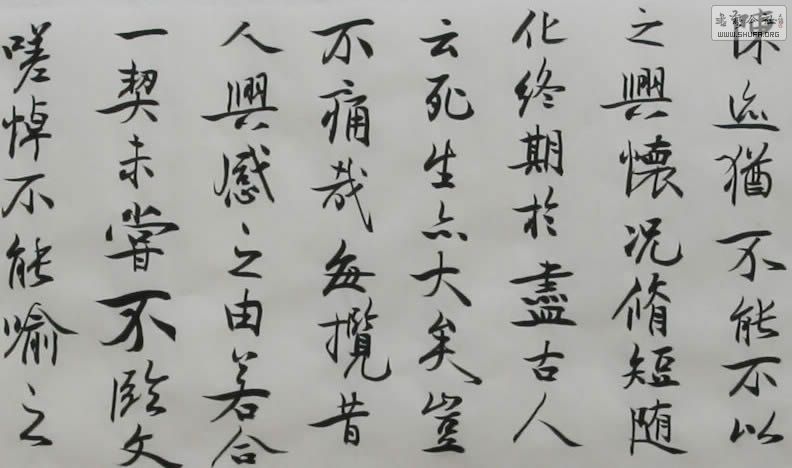 陳迹猶不能不以
之興懷况脩短随
化終期於盡古人
云死生亦大矣豈
不痛哉每攬昔
人興感之由若合
一契未嘗不臨文
嗟悼不能喻之
WWW.SHUFA.ORG